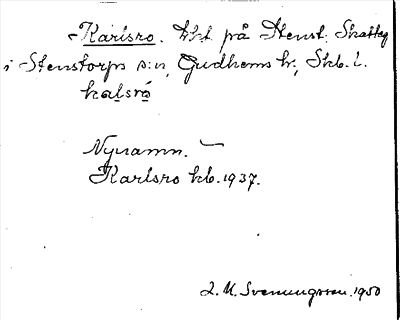 - Karlsro. Lht. på Stenst. Skatteg
i Stenstorps s:n, Gudhems hd, Skb. l.
kalsrò
Nynamn. —
Karlsro kb. 1937.
L. M. Svenungsson. 1950